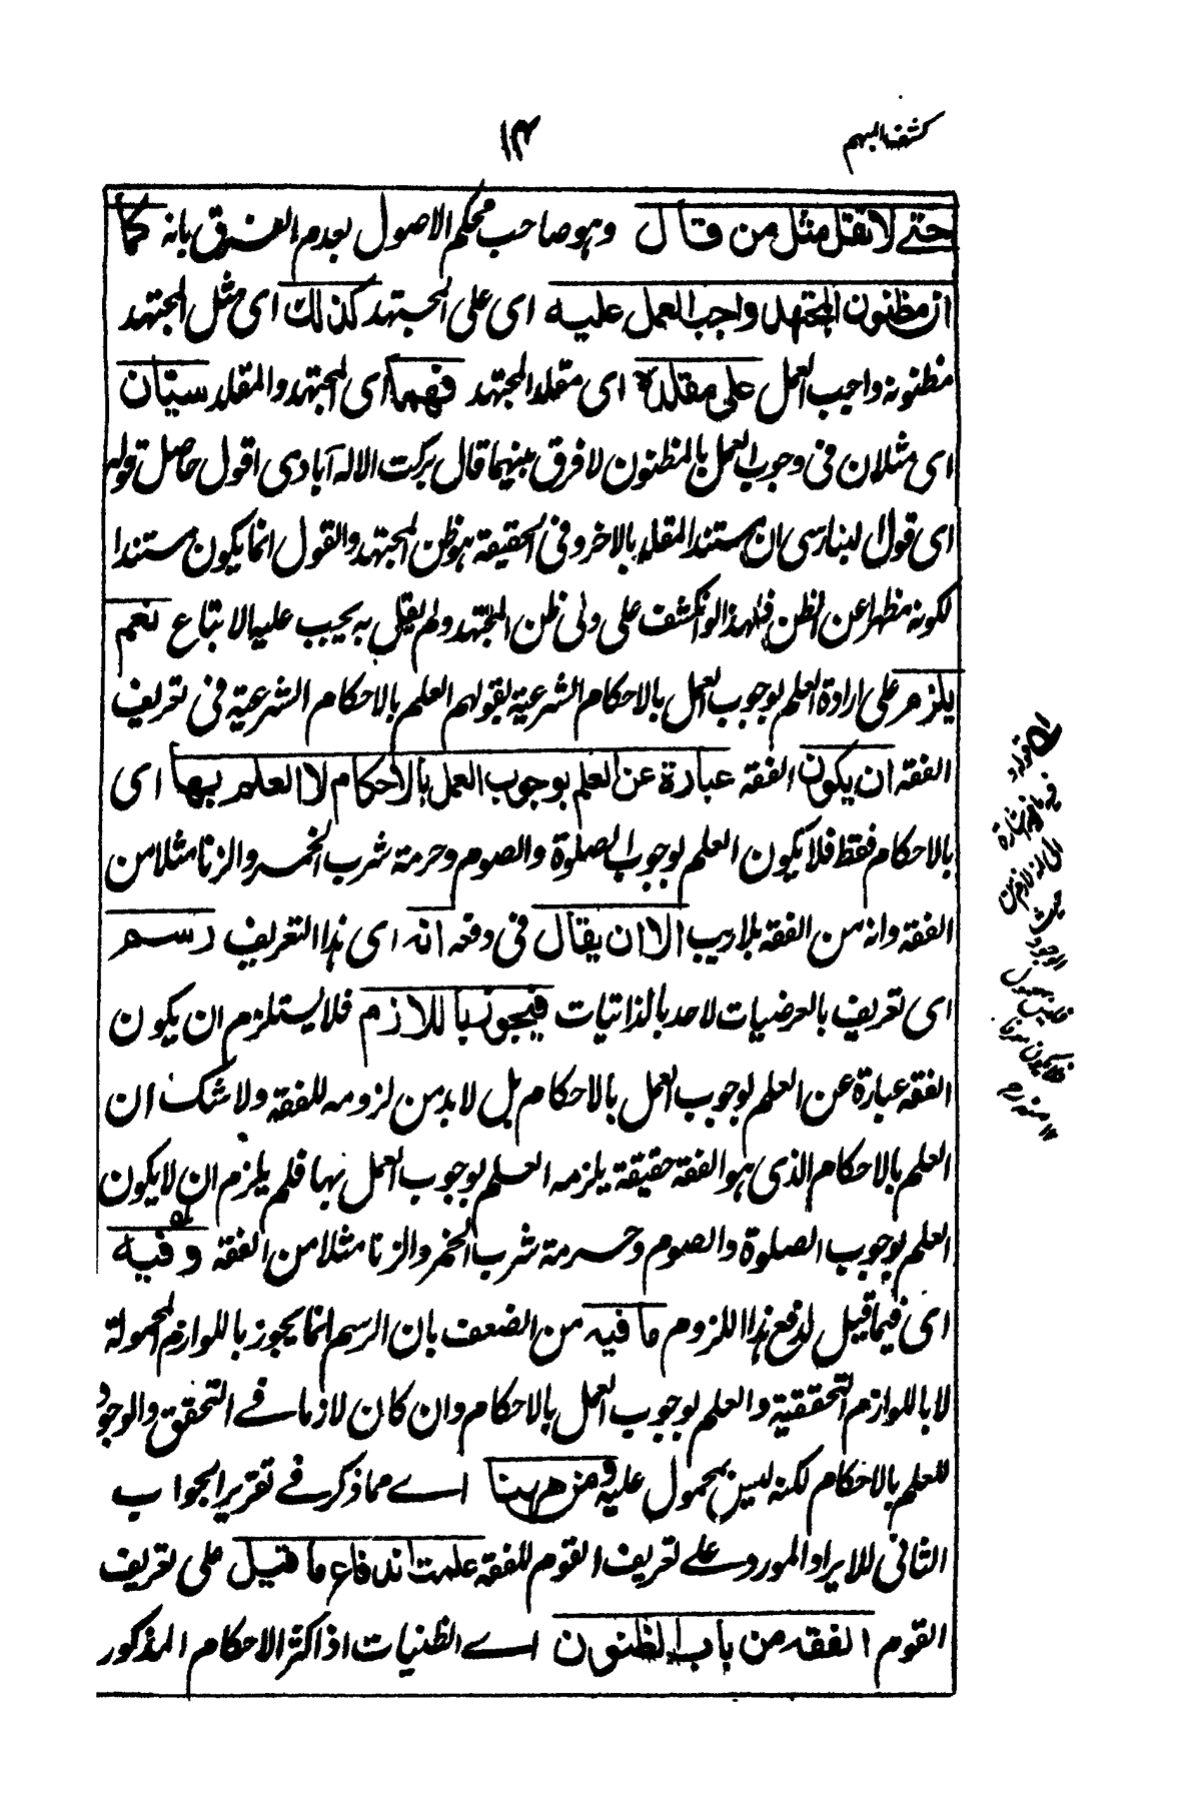 كشف المبهم
١٤
حتى لا تقل مثل من قال وهو صاحب محكم الاصول بعدم الفرق بانه كما
ان مظنون المجتهد واجب العمل عليه اى على المجتهد كذلك اى مثل المجتهد
مظنونه واجب العمل على مقلده اى مقلد المجتهد فهما اى المجتهد والمقلد سيّان
اى مثلان فى وجوب العمل بالمظنون لا فرق بينهما قال بركت الاله آبادى اقول حاصل قوله
اى قول البنارسى ان مستند المقلد بالاخر وفى الحقيقة هو ظن المجتهد والقول انما يكون مستندا
لكونه مظهرا عن الظن فلهذا لو انكشف على ولى ظن المجتهد ولم يقل به يجب عليه الاتباع نعم
يلزم على ارادة العلم بوجوب العمل بالاحكام الشرعية بقولهم العلم بالاحكام الشرعية فى تعريف
الفقه ان يكون الفقه عبارة عن العلم بوجوب العمل بالاحكام لا العلم بها اى
بالاحكام فقط فلا يكون العلم بوجوب الصلوة والصوم وحرمة شرب الخمر والزنا مثلا من
الفقه وانه من الفقه بلا ريب الا ان يقال فى دفعه انه اى هذا التعريف رسم
اى تعريف بالعرضيات لا حد بالذاتيات فيجوز باللازم فلا يستلزم ان يكون
الفقه عبارة عن العلم بوجوب العمل بالاحكام بل لا بد من لزومه للفقه ولا شك ان
العلم بالاحكام الذى هو الفقه حقيقة يلزمه العلم بوجوب العمل بها فلم يلزم ان لا يكون
العلم بوجوب الصلوة والصوم وحرمة شرب الخمر والزنا مثلا من الفقه وفيه
اى فيما قيل لدفع هذا اللزوم ما فيه من الضعف بان الرسم انما يجوز باللوازم المحمولة
لا باللوازم التحققية والعلم بوجوب العمل بالاحكام وان كان لازما فے التحقق والوجود
للعلم بالاحكام لكنه ليس بمحمول عليه ومن ههنا اے مما ذكر فے تقرير الجواب
الثانى للايراد المورود علے تعريف القوم للفقه علمت اندفاع ما قيل على تعريف
القوم الفقه من باب الظنون اے الظنيات اذ اكثر الاحكام المذكور